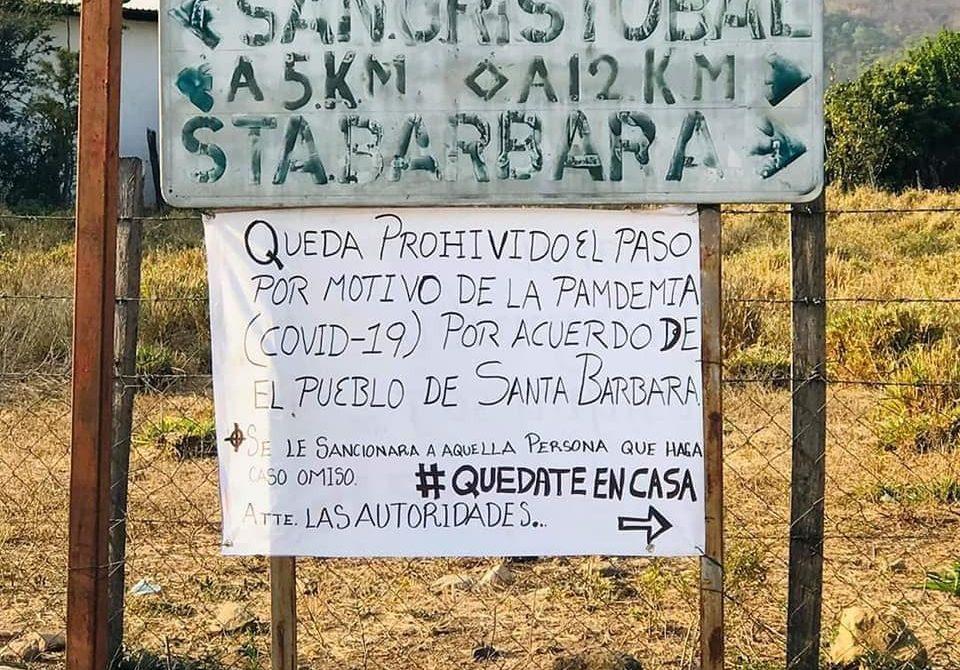 SAN.CRISTOBAL
A 5.K.M ◇ A 12 K M
STA.BARBARA
QUEDA PROHIVIDO EL PASO
POR MOTIVO DE LA PAMDEMIA
(COVID-19) POR ACUERDO DE
EL PUEBLO DE SANTA BARBARA
SE LE SANCIONARA A AQUELLA PERSONA QUE HAGA
CASO OMISO. #QUEDATE EN CASA
ATTE. LAS AUTORIDADES...